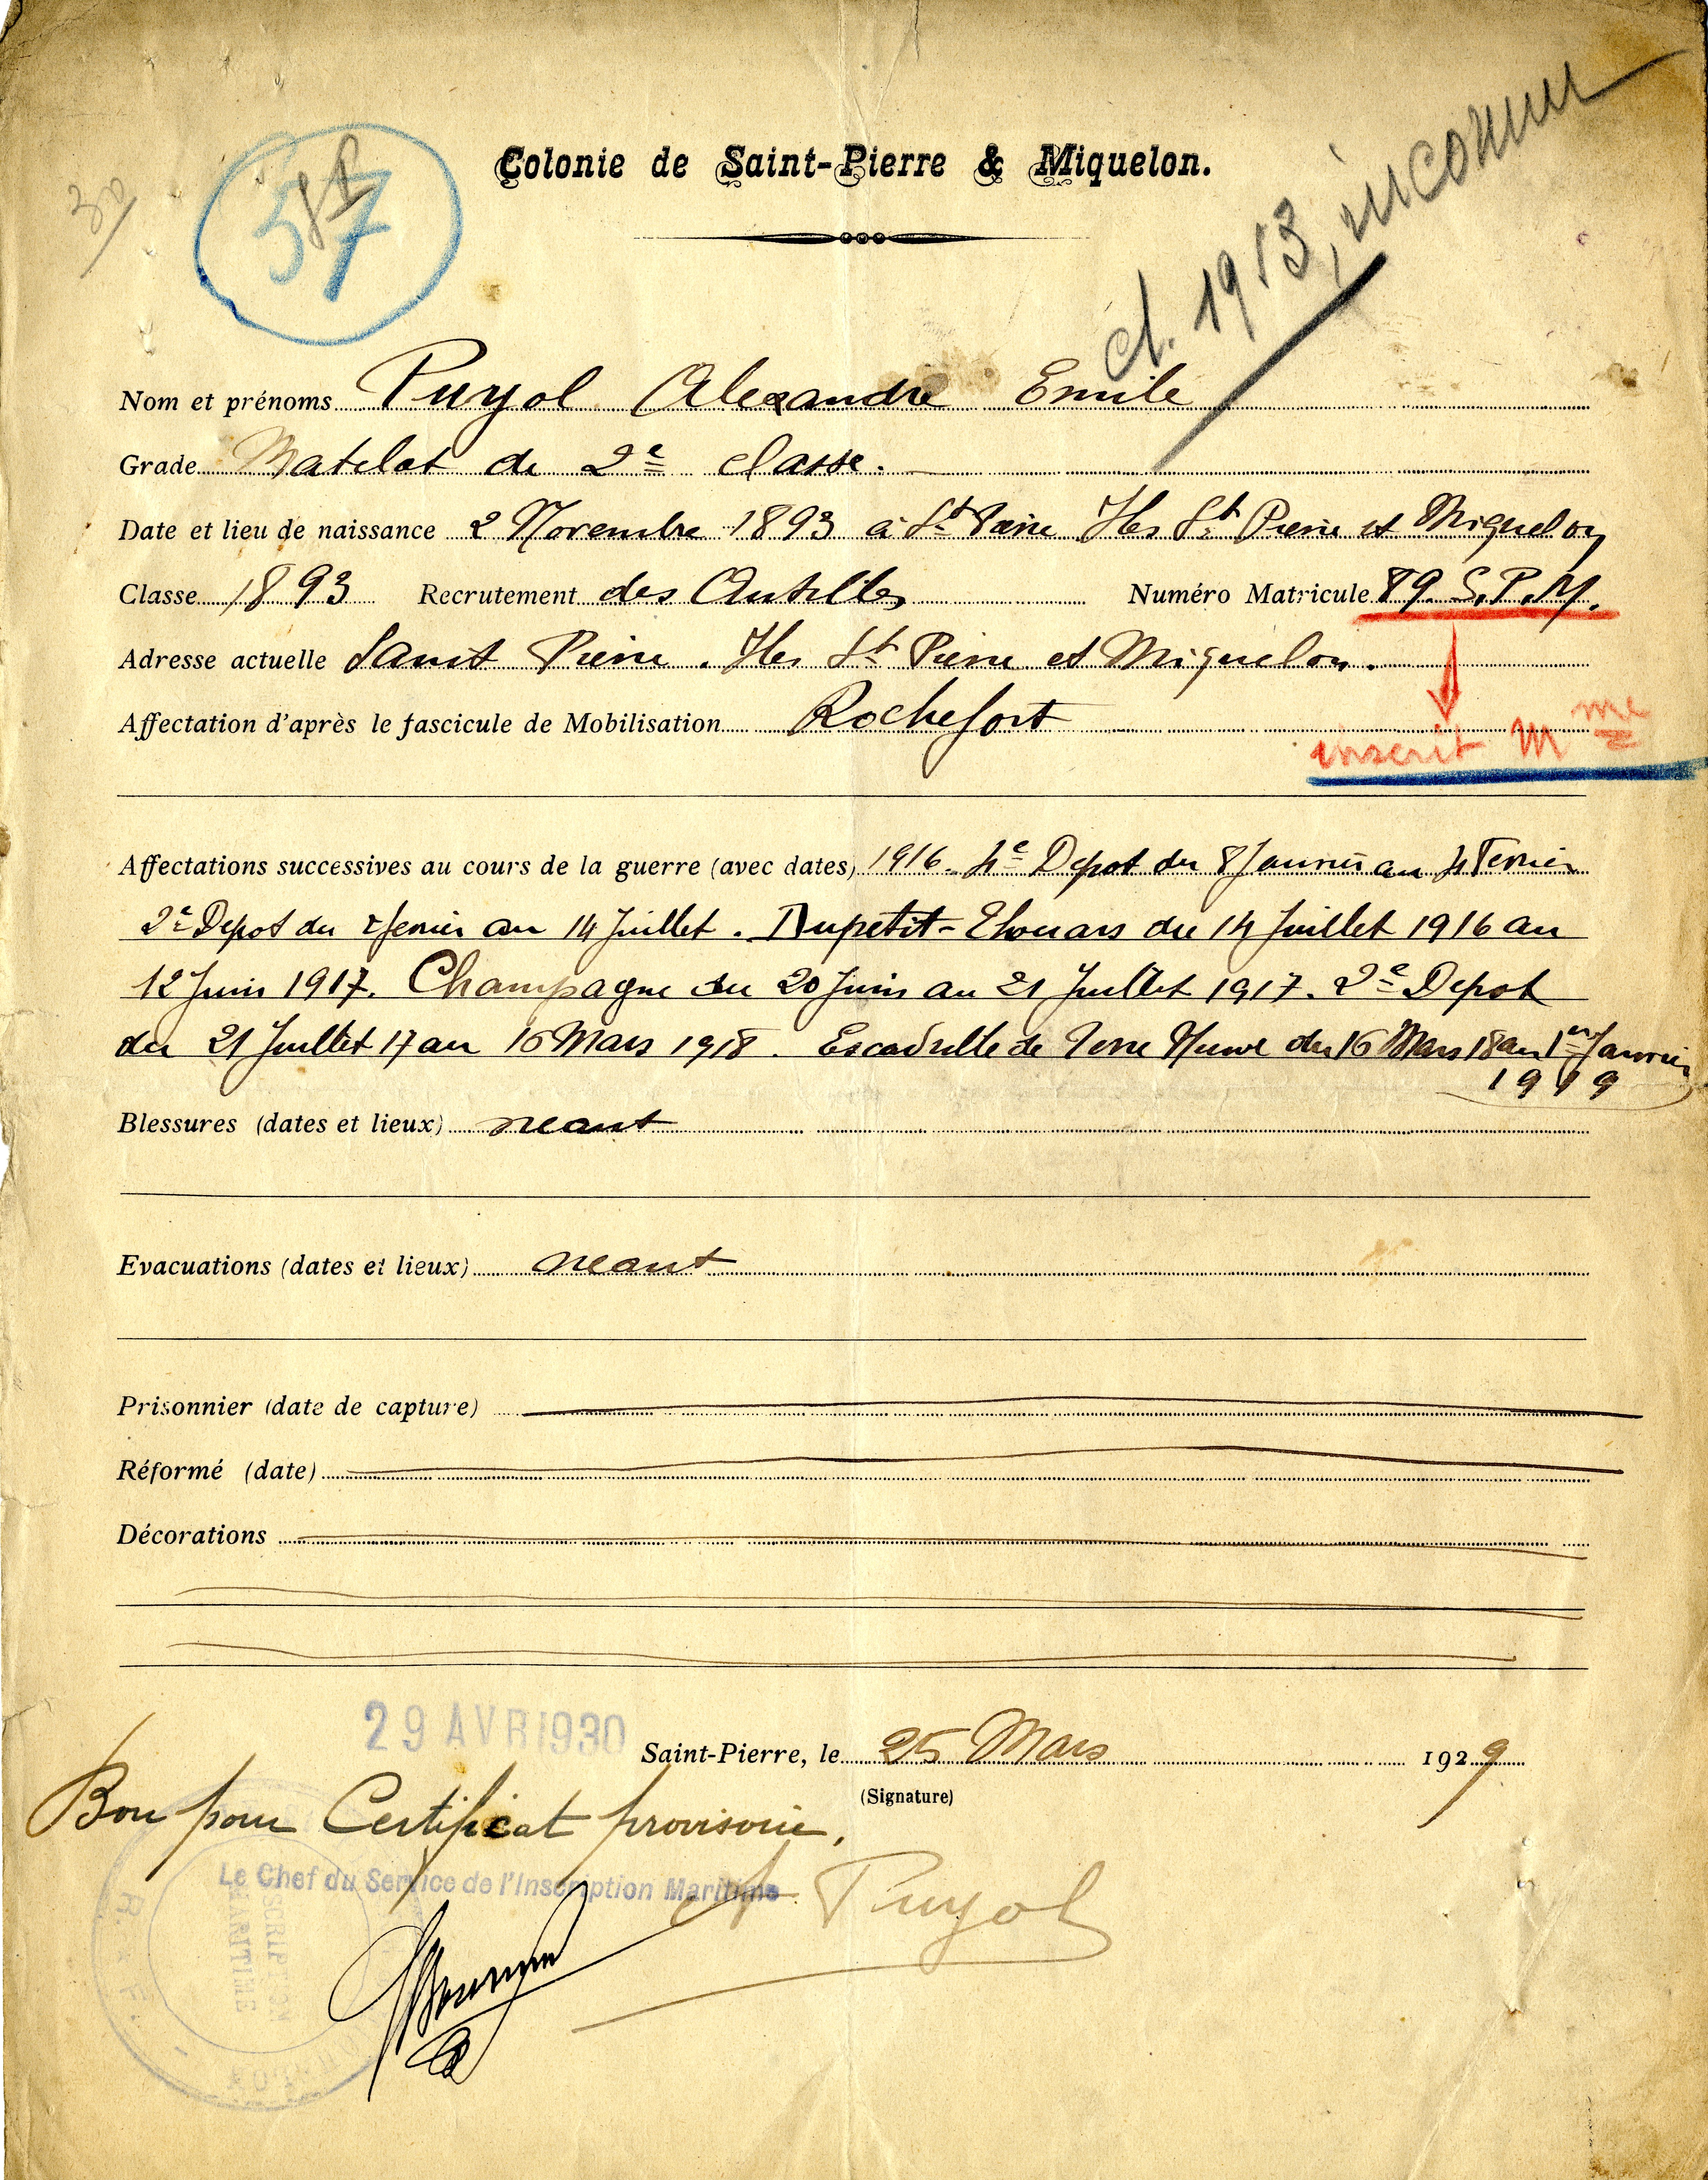 Colonie de Saint-Pierre & Miquelon.
57
cl. 1913, inconnu
Nom et prénoms Puyol Alexandre Emile
Grade Matelot de 2e classe.
Date et lieu de naissance 2 Novembre 1893 à St Pierre Iles St Pierre et Miquelon
Classe 1893 Recrutement des Antilles Numéro Matricule 89. S.P.M.
Adresse actuelle Saint Pierre. Iles St Pierre et Miquelon.
Affectation d'après le fascicule de Mobilisation Rochefort
inscrit Mme
Affectations successives au cours de la guerre (avec dates) 1916. 4e Depot du 8 Janvier au 4 Fevrier
2e Depot du fevrier au 14 Juillet. Dupetit-Thouars du 14 Juillet 1916 au
12 Juin 1917. Champagne du 20 Juin au 21 Juillet 1917. 2e Depot
du 21 Juillet 17 au 16 Mars 1918. Escadrille de Terre Neuve du 16 Mars 18 au 1er Janvier
1919
Blessures (dates et lieux) neant
Evacuations (dates et lieux) neant
Prisonnier (date de capture)
Réformé (date)
Décorations
29 AVR 1930
Saint-Pierre, le 25 Mars 1929
(Signature)
Bon pour Certificat provisoire.
Le Chef du Service de l'Inscription Maritime
A Puyol
INSCRIPTION
MARITIME
R. F.